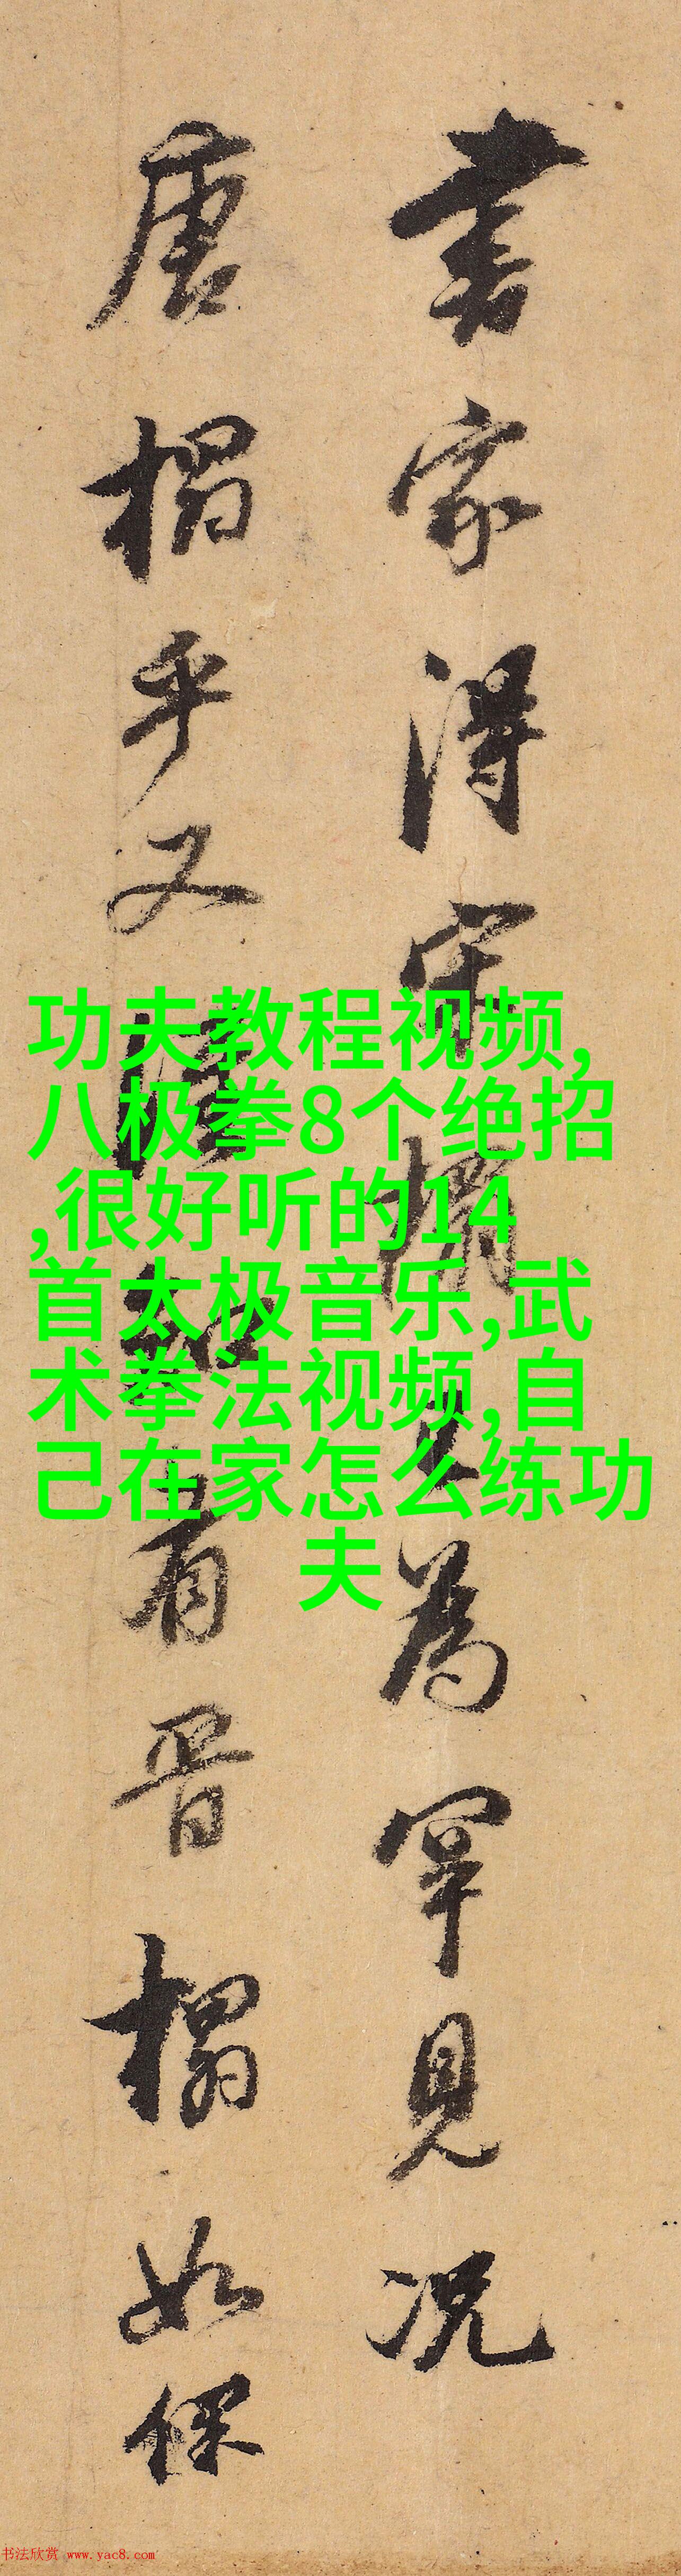 書家得宋搨以為罕見況
唐搨乎又有晉搨如保
功夫教程视频,
八极拳8个绝招
,很好听的14
首太极音乐,武
术拳法视频,自
己在家怎么练功
夫
书法欣赏 www.yac8.com